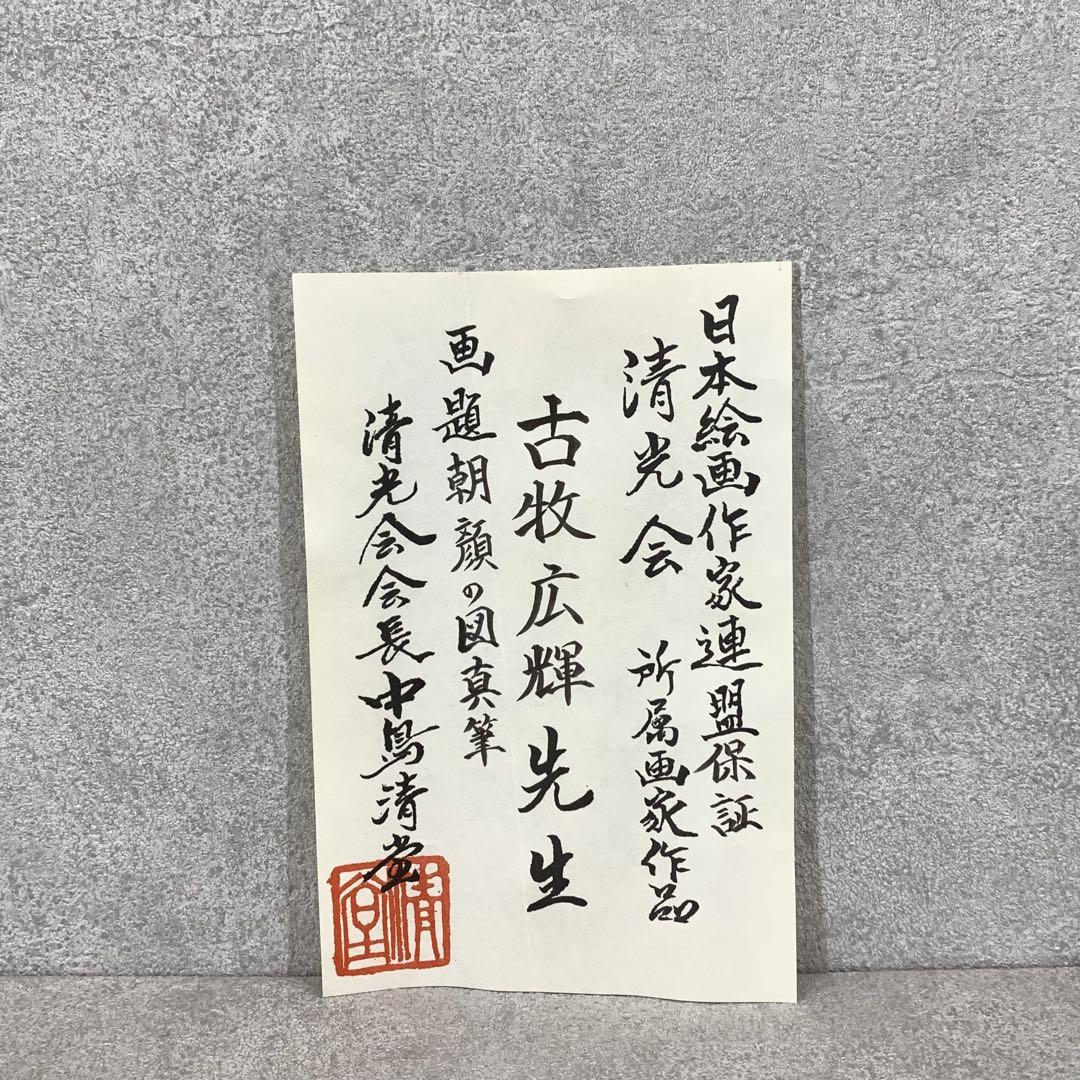 日本絵画作家連盟保証
清光会 所属画家作品
古牧広輝先生
画題朝顔の図真筆
清光会会長中島清堂
清堂